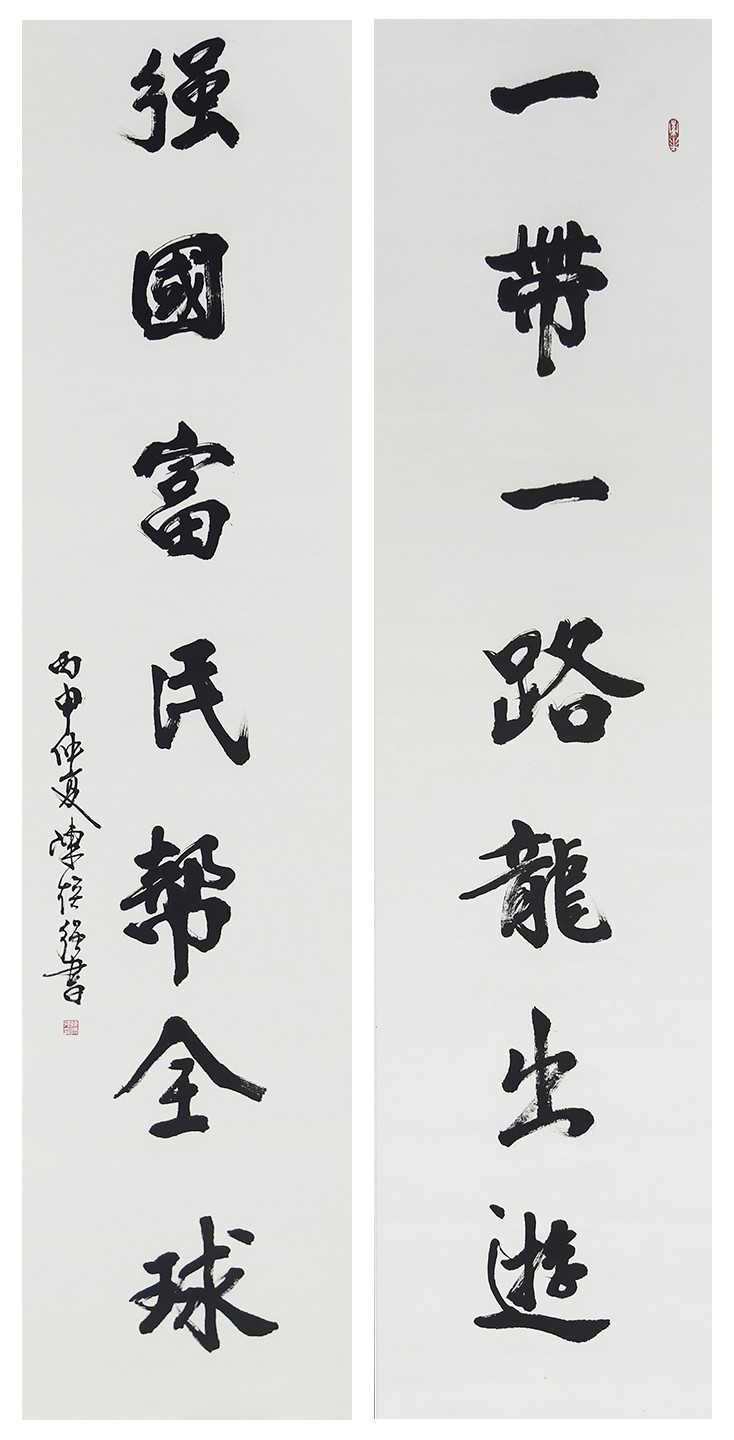 一帶一路龍出遊
强國富民幫全球
丙申仲夏陳培强書